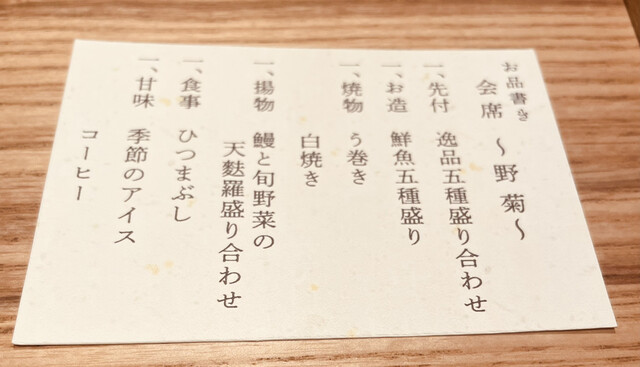 お品書き
会席 〜野菊〜
一、先付 逸品五種盛り合わせ
一、お造 鮮魚五種盛り
一、焼物 う巻き
白焼き
一、揚物 鰻と旬野菜の
天麩羅盛り合わせ
一、食事 ひつまぶし
一、甘味 季節のアイス
コーヒー